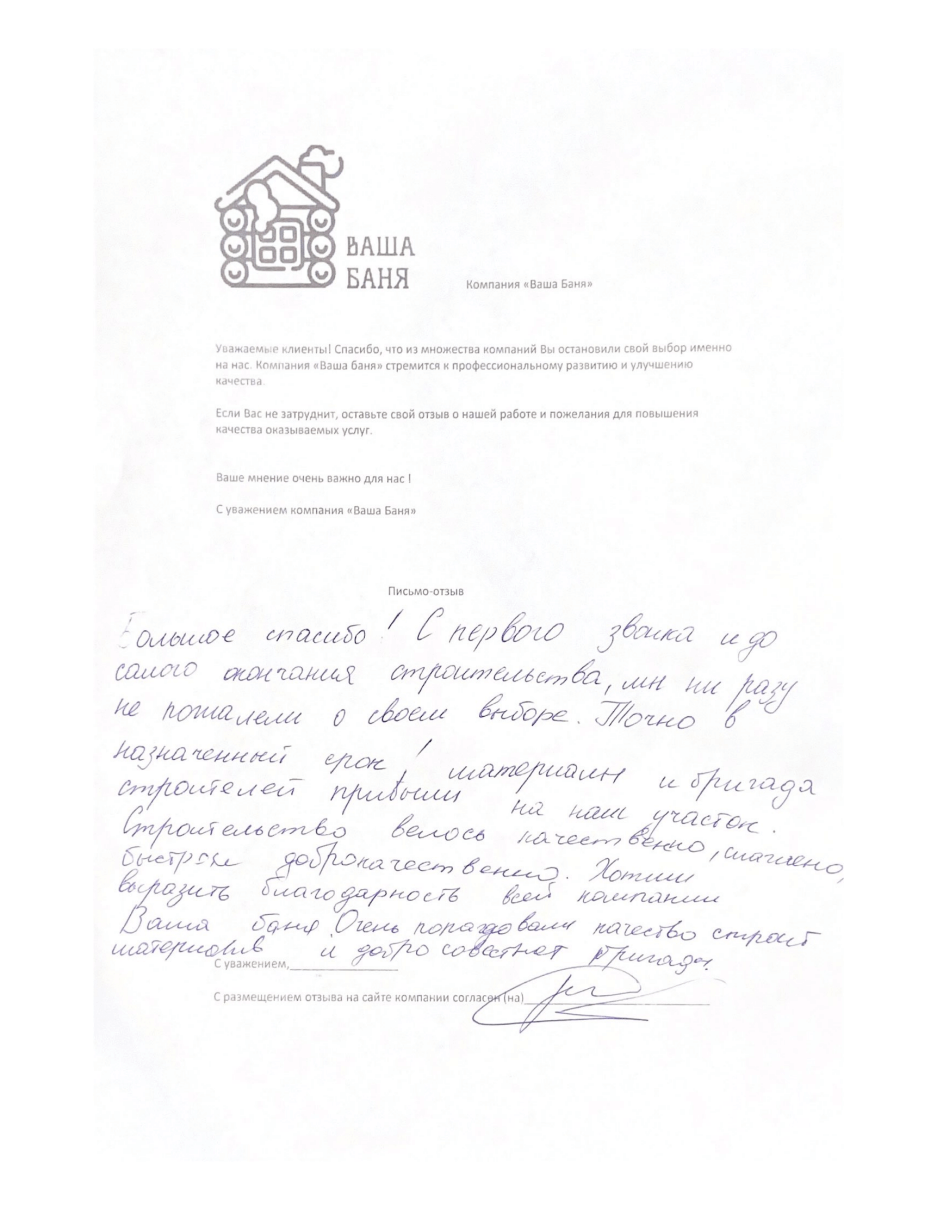 ВАША
БАНЯ
Компания «Ваша Баня»
Уважаемые клиенты! Спасибо, что из множества компаний Вы остановили свой выбор именно
на нас. Компания «Ваша баня» стремится к профессиональному развитию и улучшению
качества.
Если Вас не затруднит, оставьте свой отзыв о нашей работе и пожелания для повышения
качества оказываемых услуг.
Ваше мнение очень важно для нас !
С уважением компания «Ваша Баня»
Письмо-отзыв
Большое спасибо! С первого звонка и до
самого окончания строительства, мы ни разу
не пожалели о своем выборе. Точно в
назначенный срок! материалы и бригада
строителей прибыли на наш участок.
Строительство велось качественно, слаженно,
быстро и доброкачественно. Хотим
выразить благодарность всей компании
Ваша баня. Очень порадовали качество строит
материалов и добросовестная бригада.
С уважением,
С размещением отзыва на сайте компании согласен (на)